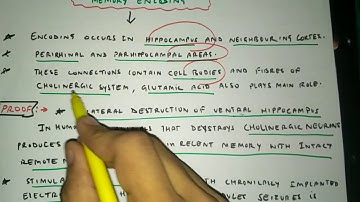 MEMORY ENCODING
* ENCODING OCCURS IN HIPPOCAMPUS AND NEIGHBOURING CORTEX.
* PERIRHINAL AND PARHIPPOCAMPAL AREAS.
* THESE CONNECTIONS CONTAIN CELL BODIES AND FIBRES OF
CHOLINERGIC SYSTEM, GLUTAMIC ACID ALSO PLAYS MAIN ROLE.
PROOF:→ * BILATERAL DESTRUCTION OF VENTRAL HIPPOCAMPUS
IN HUMAN THAT DEYSTROYS CHOLINERGIC NEURONS
PRODUCES IN RECENT MEMORY WITH INTACT
REMOTE
* STIMUL WITH CHRONICALLY IMPLANTED
ELECTR SEIZURES IS